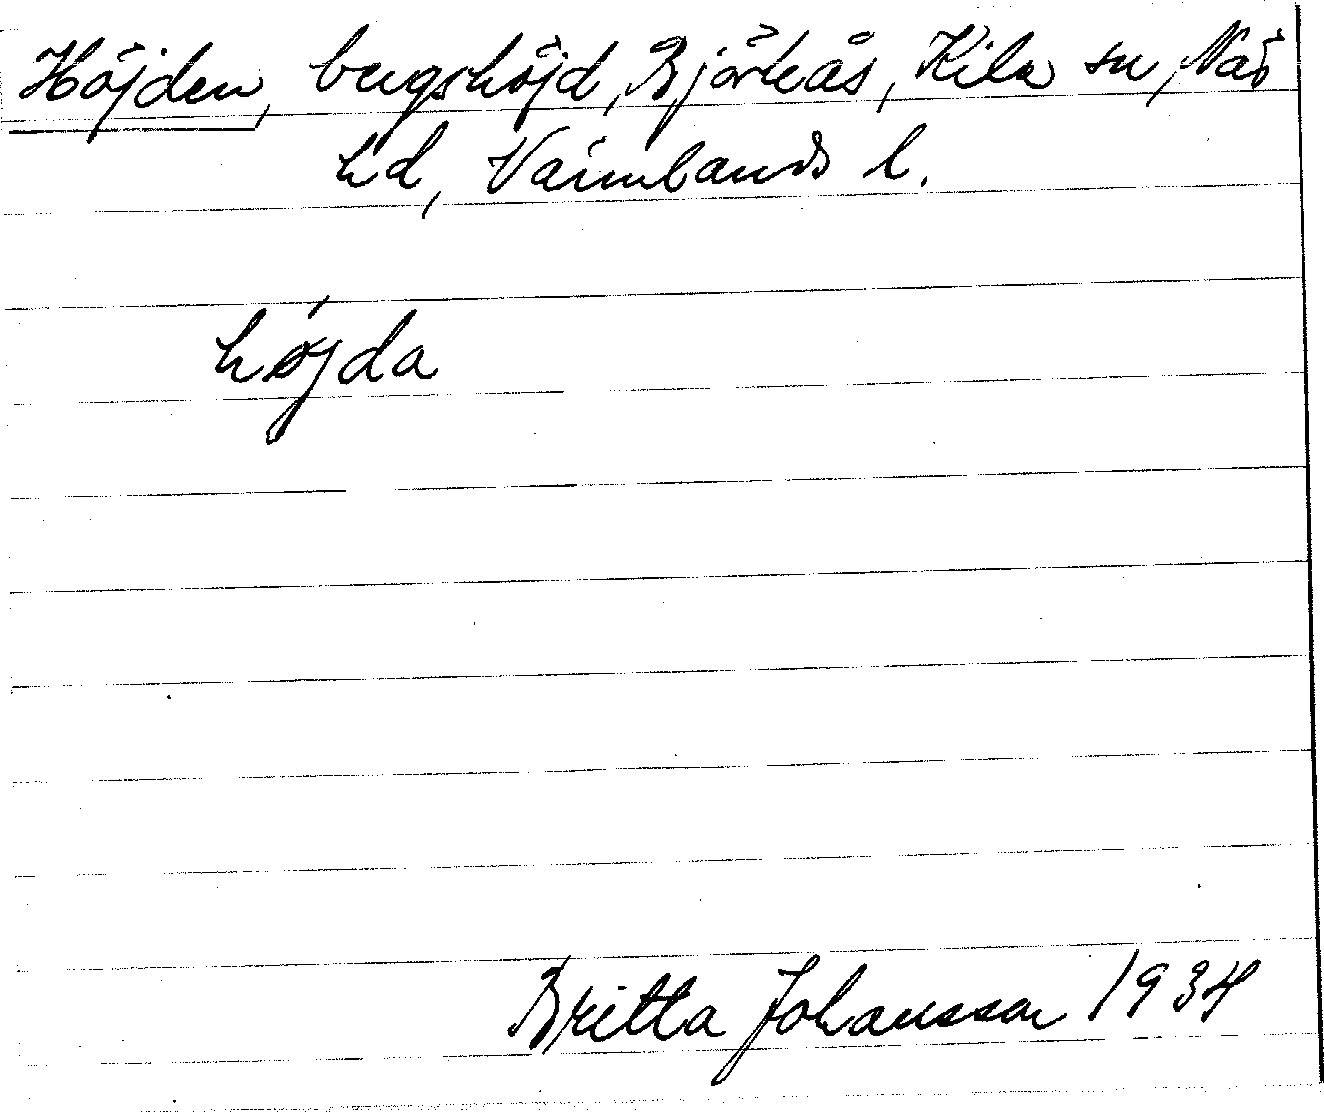 Höjden, bergshöjd, Björkås, Kila sn, Näs
hd, Värmlands l.
hǿjda
Britta Johansson 1934